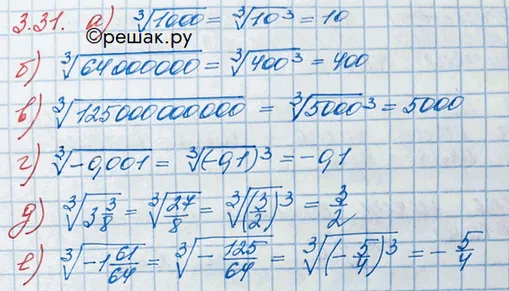 3.31. а) ∛1000 = ∛10³ = 10
©решак.ру
б) ∛64000000 = ∛400³ = 400
в) ∛125000000000 = ∛5000³ = 5000
г) ∛-0,001 = ∛(-0,1)³ = -0,1
д) ∛3 3/8 = ∛27/8 = ∛(3/2)³ = 3/2
е) ∛-1 61/64 = ∛-125/64 = ∛(-5/4)³ = -5/4